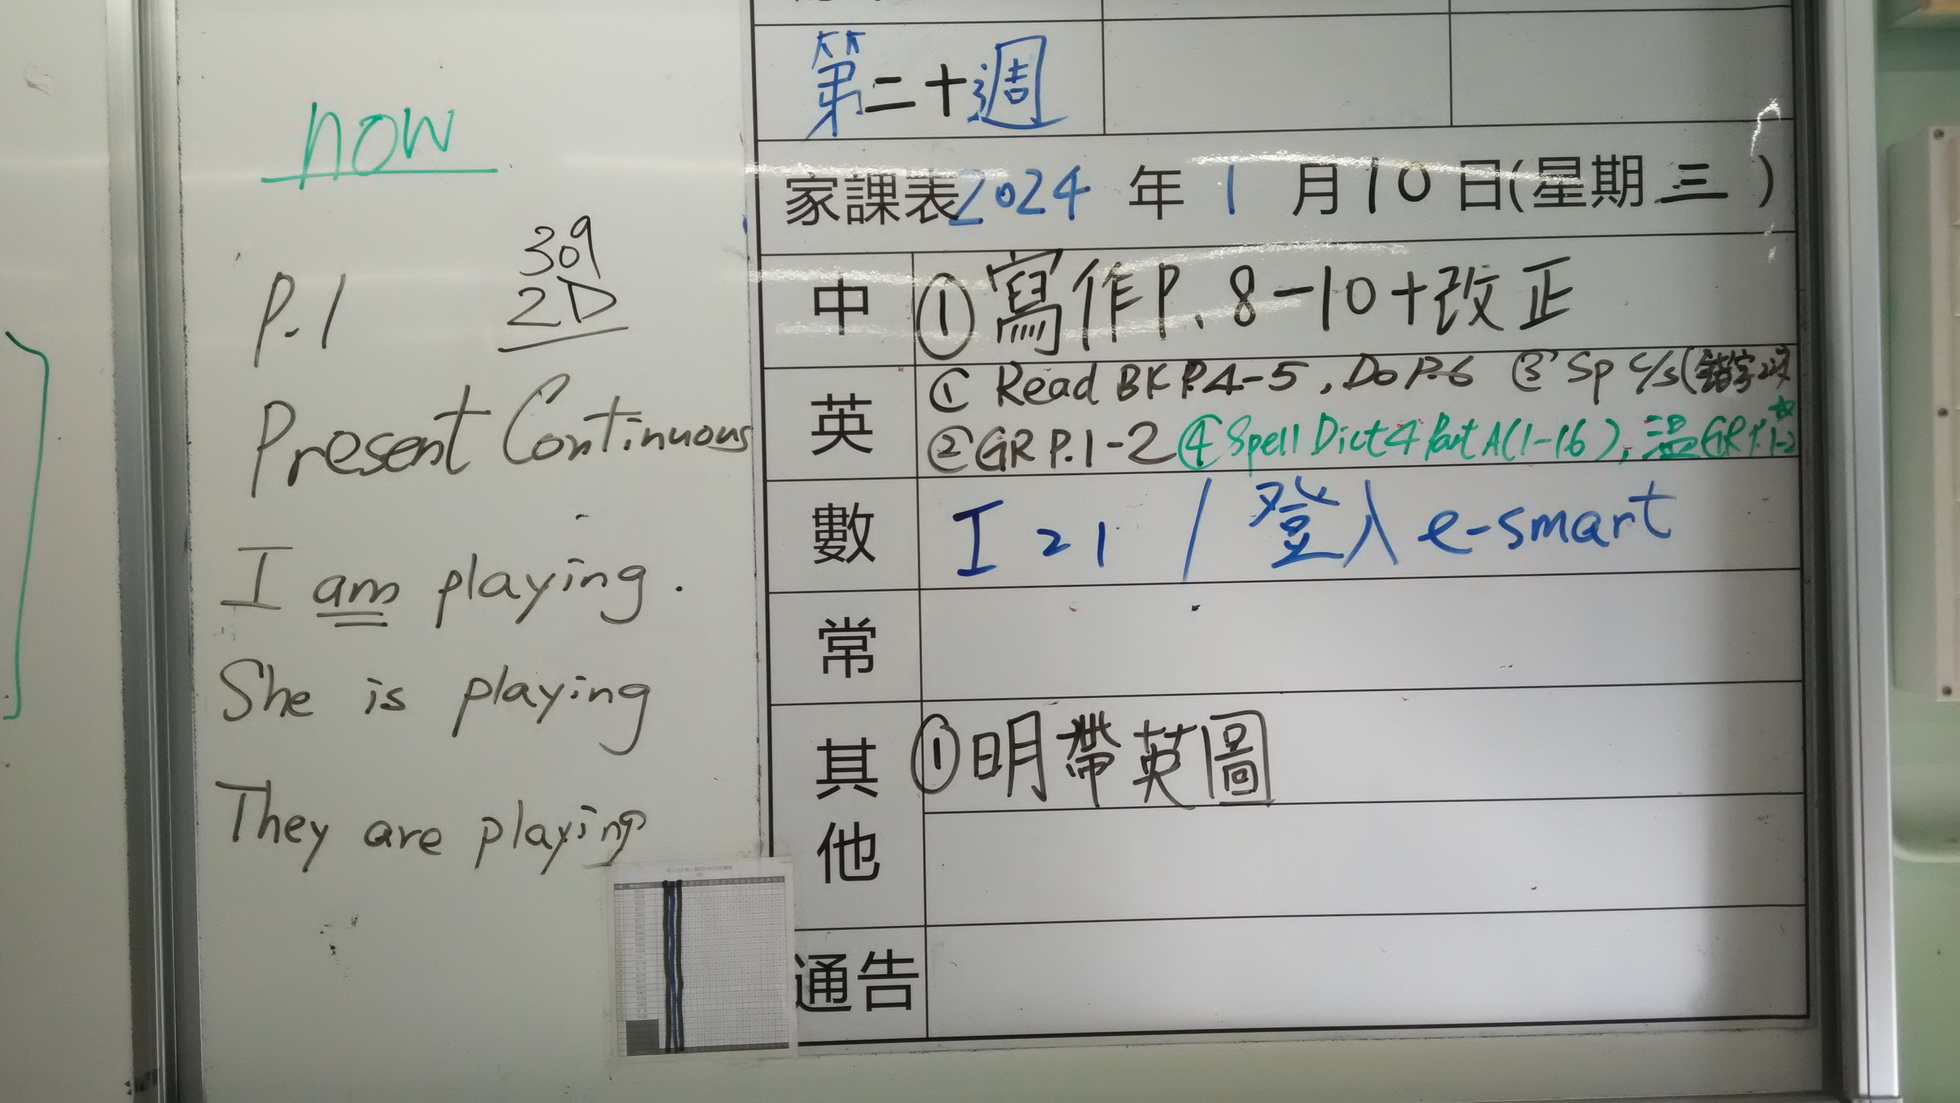 now
P.1
309
2D
Present Continuous
I am playing.
She is playing
They are playing
第二十週
家課表 2024 年 1 月 10 日(星期 三 )
中
① 寫作P. 8-10+改正
英
① Read BK P.4-5, Do P.6 ③ Sp c/s(錯字
② GR P.1-2 ④ Spell Dict 4 Part A(1-16), 溫GR P.1-2
數
I 21 / 登入 e-smart
常
其他
① 明帶英圖
通告